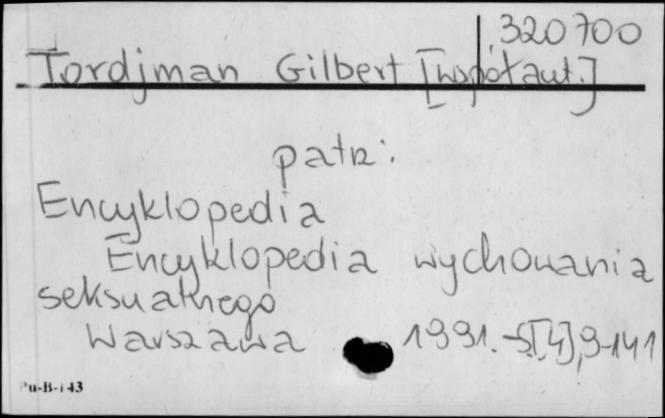 320700
Tordjman Gilbert [współaut.]
patrz:
Encyklopedia
Encyklopedia wychowania
seksualnego
Warszawa 1991.-s.[4],9-141
Pu-B-143